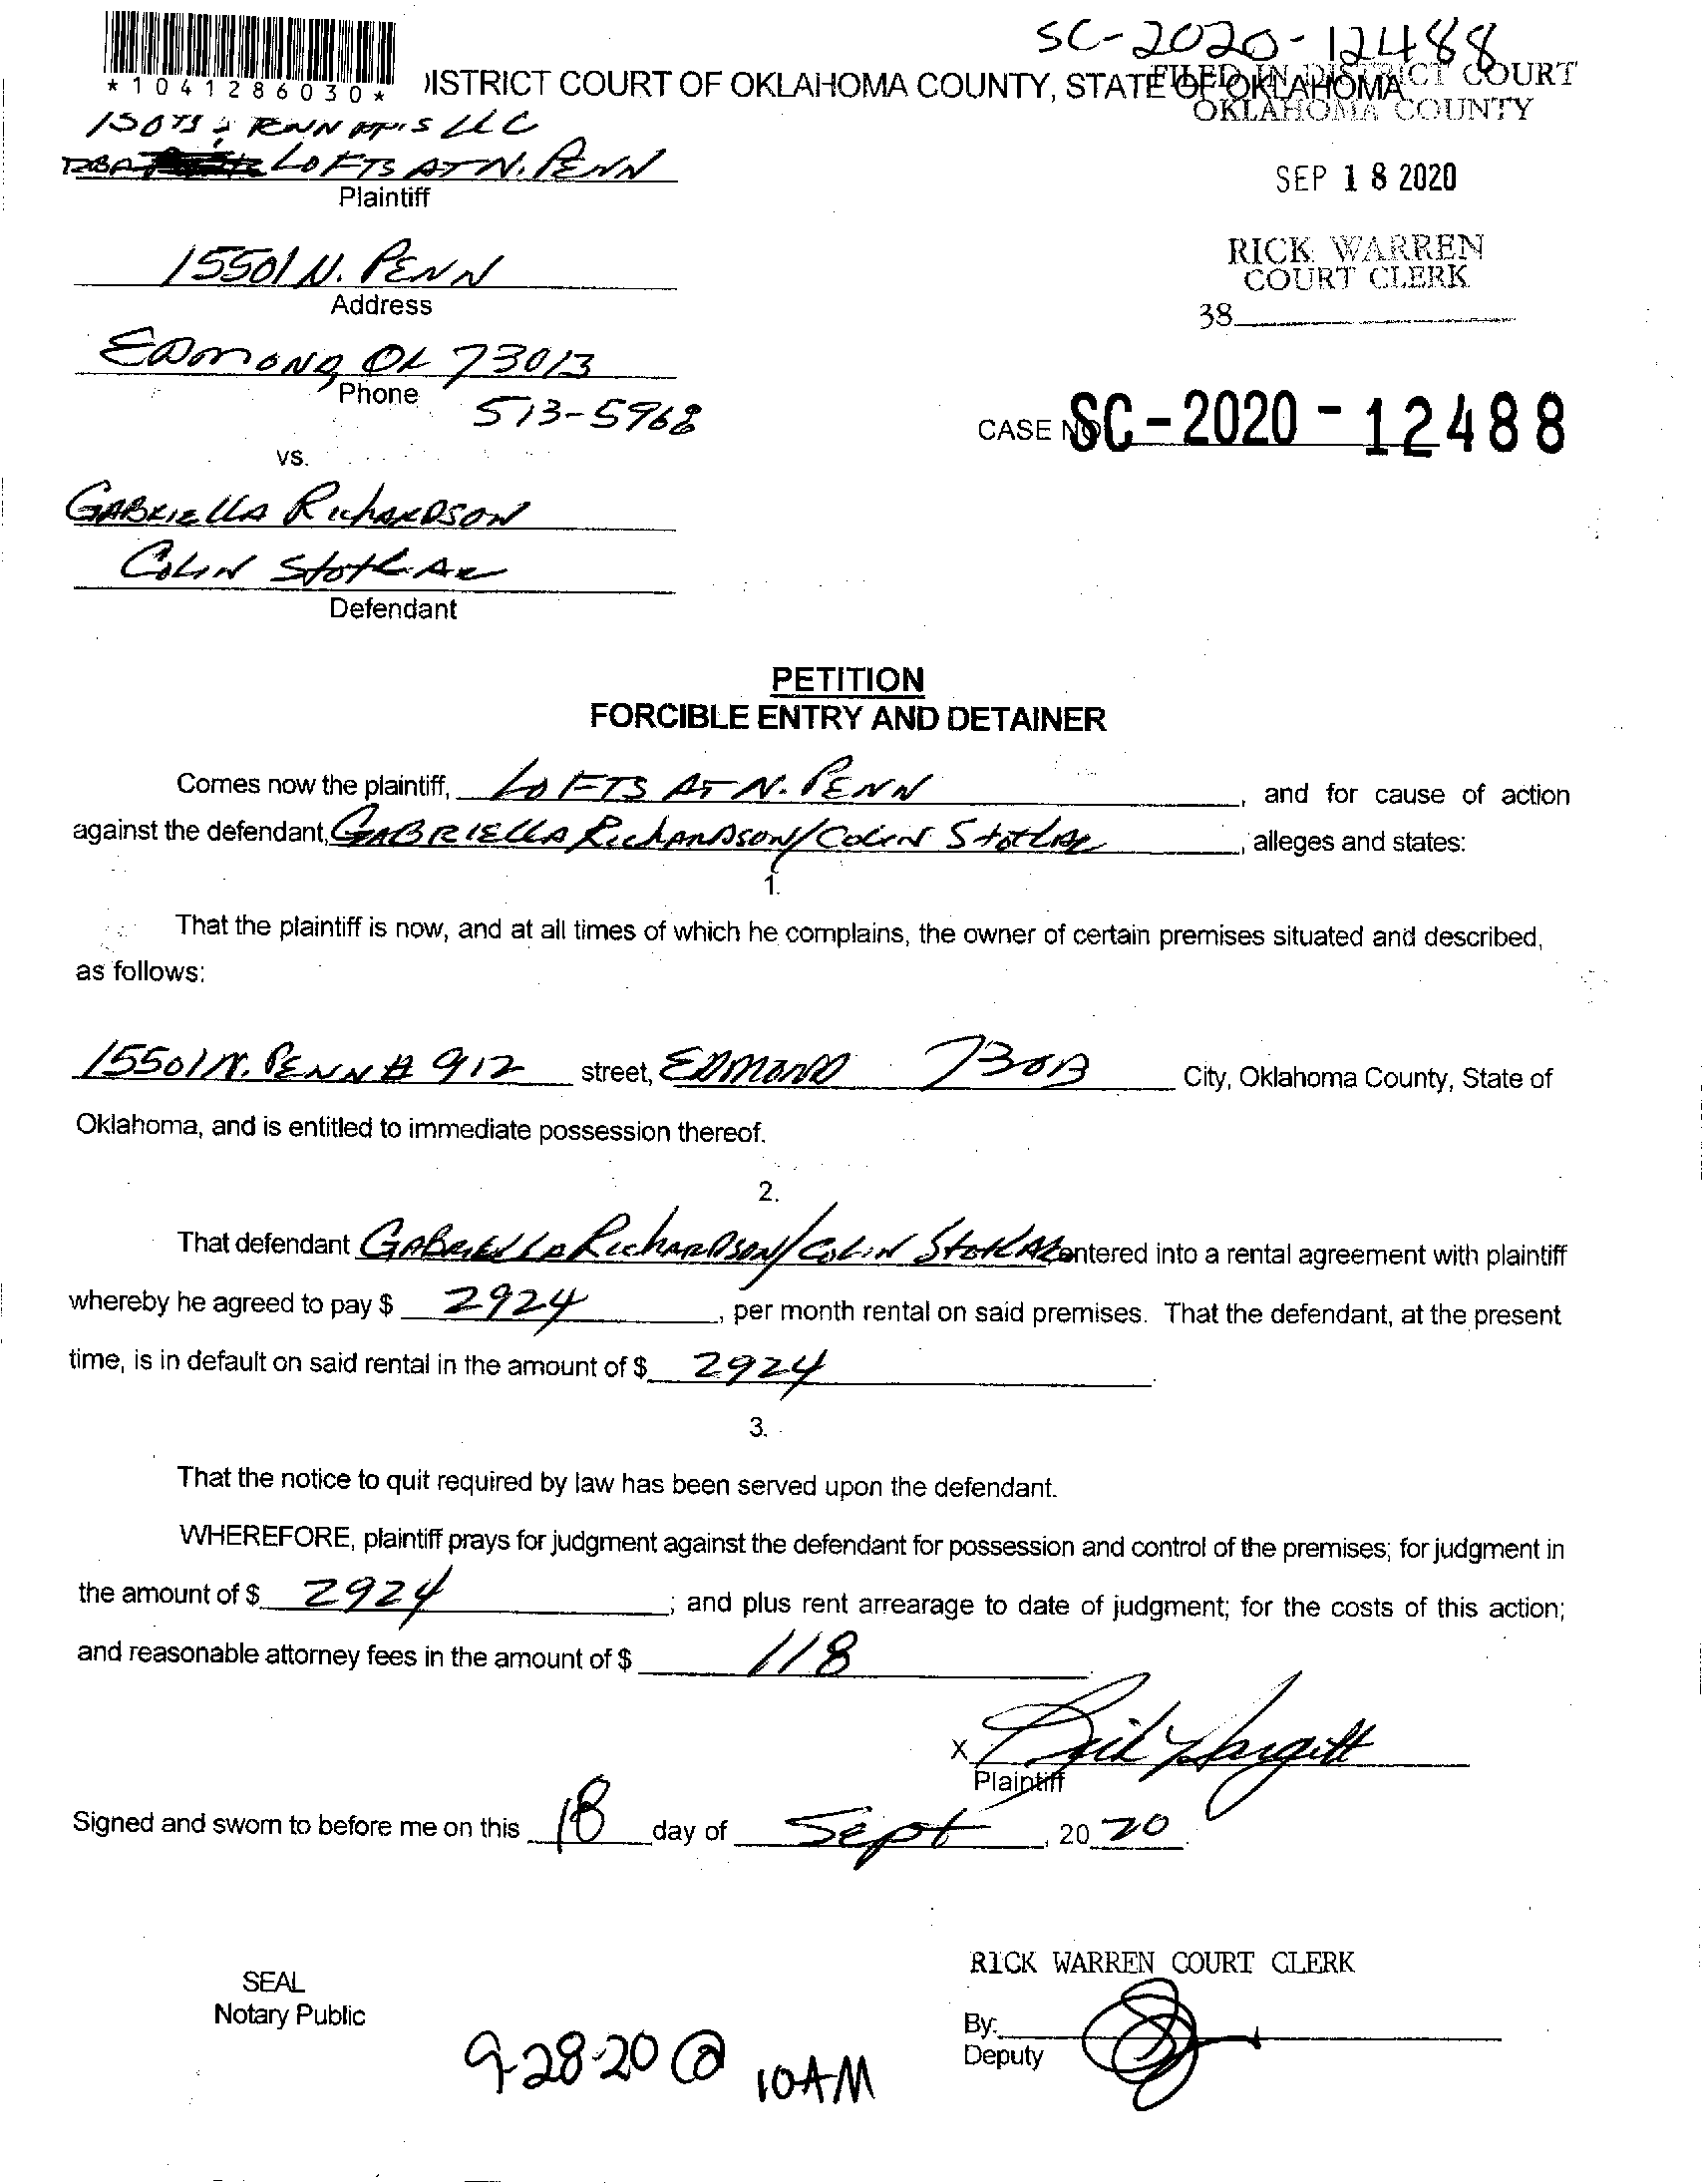 SC-2020-12488
*1041286030*
DISTRICT COURT OF OKLAHOMA COUNTY, STATE OF OKLAHOMA
FILED IN DISTRICT COURT
OKLAHOMA COUNTY
LLC
DBA LOFTS AT N. PENN
Plaintiff
SEP 18 2020
15501 N. PENN
Address
RICK WARREN
COURT CLERK
38
EDMOND, OK 73013
Phone 513-5968
CASE NO. SC-2020-12488
vs.
GABRIELLA RICHARDSON
COLIN STOTLAR
Defendant
PETITION
FORCIBLE ENTRY AND DETAINER
Comes now the plaintiff, LOFTS AT N. PENN, and for cause of action
against the defendant, GABRIELLA RICHARDSON/COLIN STOTLAR, alleges and states:
1.
That the plaintiff is now, and at all times of which he complains, the owner of certain premises situated and described,
as follows:
15501 N. PENN # 912 street, EDMOND 73013 City, Oklahoma County, State of
Oklahoma, and is entitled to immediate possession thereof.
2.
That defendant GABRIELLA RICHARDSON/COLIN STOTLAR entered into a rental agreement with plaintiff
whereby he agreed to pay $ 2924, per month rental on said premises. That the defendant, at the present
time, is in default on said rental in the amount of $ 2924.
3.
That the notice to quit required by law has been served upon the defendant.
WHEREFORE, plaintiff prays for judgment against the defendant for possession and control of the premises; for judgment in
the amount of $ 2924; and plus rent arrearage to date of judgment; for the costs of this action;
and reasonable attorney fees in the amount of $ 118
X
Plaintiff
Signed and sworn to before me on this 18 day of Sept, 2020.
RICK WARREN COURT CLERK
SEAL
Notary Public
By:
Deputy
9-28-20 @ 10AM